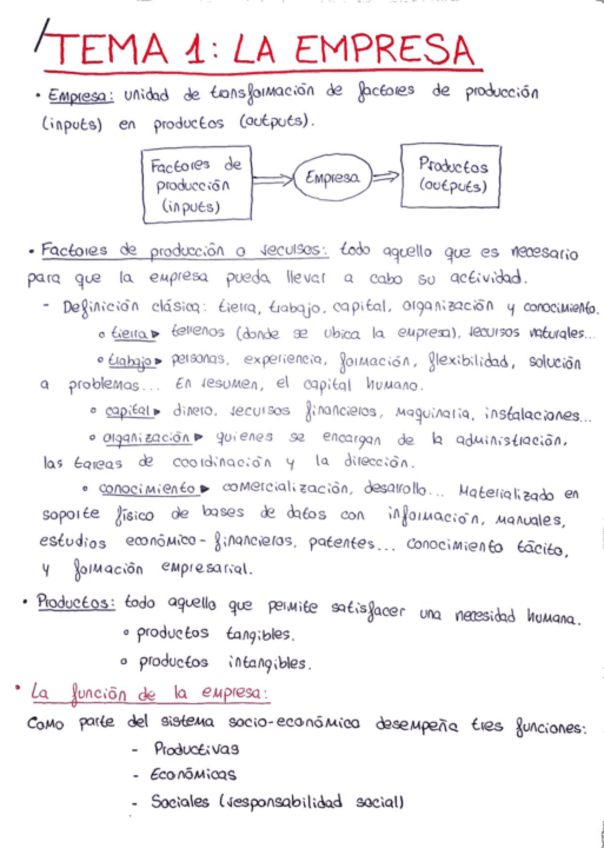 TEMA 1: LA EMPRESA
• Empresa: unidad de transformación de factores de producción
(inputs) en productos (outputs).
Factores de
producción
(inputs)
Empresa
Productos
(outputs)
• Factores de producción o recursos: todo aquello que es necesario
para que la empresa pueda llevar a cabo su actividad.
- Definición clásica: tierra, trabajo, capital, organización y conocimiento.
• tierra ▸ terrenos (donde se ubica la empresa), recursos naturales...
• trabajo ▸ personas, experiencia, formación, flexibilidad, solución
a problemas... En resumen, el capital humano.
• capital ▸ dinero, recursos financieros, maquinaria, instalaciones...
• organización ▸ quienes se encargan de la administración,
las tareas de coordinación y la dirección.
• conocimiento ▸ comercialización, desarrollo... Materializado en
soporte físico de bases de datos con información, manuales,
estudios económico-financieros, patentes... conocimiento tácito,
y formación empresarial.
• Productos: todo aquello que permite satisfacer una necesidad humana.
• productos tangibles.
• productos intangibles.
• La función de la empresa:
Como parte del sistema socio-económico desempeña tres funciones:
- Productivas
- Económicas
- Sociales (responsabilidad social)